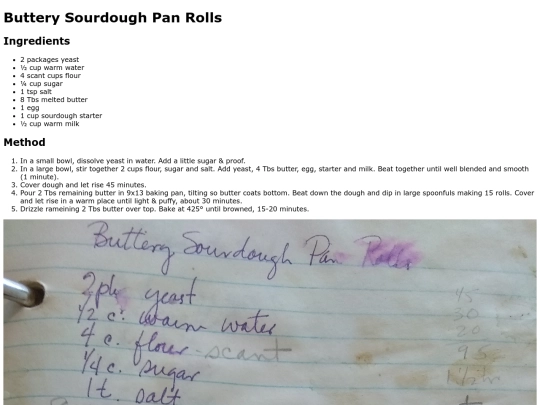 Buttery Sourdough Pan Rolls
Ingredients
2 packages yeast
½ cup warm water
4 scant cups flour
¼ cup sugar
1 tsp salt
8 Tbs melted butter
1 egg
1 cup sourdough starter
½ cup warm milk
Method
1. In a small bowl, dissolve yeast in water. Add a little sugar & proof.
2. In a large bowl, stir together 2 cups flour, sugar and salt. Add yeast, 4 Tbs butter, egg, starter and milk. Beat together until well blended and smooth
(1 minute).
3. Cover dough and let rise 45 minutes.
4. Pour 2 Tbs remaining butter in 9x13 baking pan, tilting so butter coats bottom. Beat down the dough and dip in large spoonfuls making 15 rolls. Cover
and let rise in a warm place until light & puffy, about 30 minutes.
5. Drizzle rameining 2 Tbs butter over top. Bake at 425° until browned, 15-20 minutes.
Buttery Sourdough Pan Rolls
2 pk yeast
1/2 c. warm water
4 c. flour - scant
1/4 c. sugar
1 t. salt
45
30
20
95